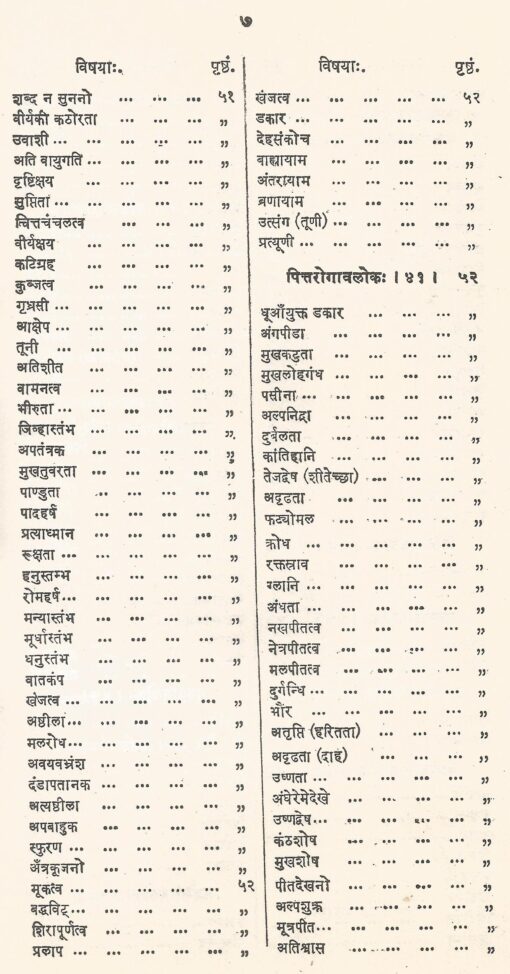 ७
विषयाः. पृष्ठं.
शब्द न सुननो ... ... ... ५१
वीर्यकी कठोरता ... ... ... ,,
उवाशी ... ... ... ... ,,
अति वायुगति ... ... ... ... ,,
दृष्टिक्षय ... ... ... ... ,,
सुप्तिता ... ... ... ... ,,
चित्तचंचलत्व ... ... ... ,,
वीर्यक्षय ... ... ... ... ,,
कटिग्रह ... ... ... ... ,,
कुब्जत्व ... ... ... ... ,,
गृध्रसी ... ... ... ... ,,
आक्षेप ... ... ... ... ,,
तूनी ... ... ... ... ,,
अतिशीत ... ... ... ... ,,
वामनत्व ... ... ... ... ,,
भीरुता ... ... ... ... ,,
जिव्हास्तंभ ... ... ... ... ,,
अपतंत्रक ... ... ... ... ,,
मुखतुवरता ... ... ... ... ,,
पाण्डुता ... ... ... ... ,,
पादहर्ष ... ... ... ... ,,
प्रत्याध्मान ... ... ... ... ,,
रूक्षता ... ... ... ... ,,
हनुस्तम्भ ... ... ... ... ,,
रोमहर्ष ... ... ... ... ,,
मन्यास्तंभ ... ... ... ... ,,
मूर्धास्तंभ ... ... ... ... ,,
धनुस्तंभ ... ... ... ... ,,
वातकंप ... ... ... ... ,,
खंजत्व ... ... ... ... ,,
अष्ठीला ... ... ... ... ,,
मलरोध ... ... ... ... ,,
अवयवभ्रंश ... ... ... ... ,,
दंडापतानक ... ... ... ... ,,
अत्यष्ठीला ... ... ... ... ,,
अपबाहुक ... ... ... ... ,,
स्फुरण ... ... ... ... ,,
अँत्रकूजनो ... ... ... ... ,,
मूकत्व ... ... ... ... ५२
बद्धविट् ... ... ... ... ,,
शिरापूर्णत्व ... ... ... ... ,,
प्रलाप ... ... ... ... ,,
विषयाः. पृष्ठं.
खंजत्व ... ... ... ... ५२
डकार ... ... ... ... ,,
देहसंकोच ... ... ... ... ,,
बाह्यायाम ... ... ... ... ,,
अंतरायाम ... ... ... ... ,,
व्रणायाम ... ... ... ... ,,
उत्संग (तूणी) ... ... ... ... ,,
प्रत्यूणी ... ... ... ... ,,
पित्तरोगावलोकः ।४१। ५२
धूआँयुक्त डकार ... ... ... ,,
अंगपीडा ... ... ... ... ,,
मुखकटुता ... ... ... ... ,,
मुखलोहगंध ... ... ... ... ,,
पसीना ... ... ... ... ,,
अल्पनिद्रा ... ... ... ... ,,
दुर्बलता ... ... ... ... ,,
कांतिहानि ... ... ... ... ,,
तेजद्वेष (शीतेच्छा) ... ... ... ,,
अदृढता ... ... ... ... ,,
फट्योमल ... ... ... ... ,,
क्रोध ... ... ... ... ,,
रक्तस्राव ... ... ... ... ,,
ग्लानि ... ... ... ... ,,
अंधता ... ... ... ... ,,
नखपीतत्व ... ... ... ... ,,
नेत्रपीतत्व ... ... ... ... ,,
मलपीतत्व ... ... ... ... ,,
दुर्गन्धि ... ... ... ... ,,
भौंर ... ... ... ... ,,
अतृप्ति (हरितता) ... ... ... ,,
अदृढता (दाह) ... ... ... ,,
उष्णता ... ... ... ... ,,
अंधेरेमेदेखे ... ... ... ... ,,
उष्णद्वेष ... ... ... ... ,,
कंठशोष ... ... ... ... ,,
मुखशोष ... ... ... ... ,,
पीतदेखनो ... ... ... ... ,,
अल्पशुक्र ... ... ... ... ,,
मूत्रपीत ... ... ... ... ,,
अतिश्वास ... ... ... ... ,,